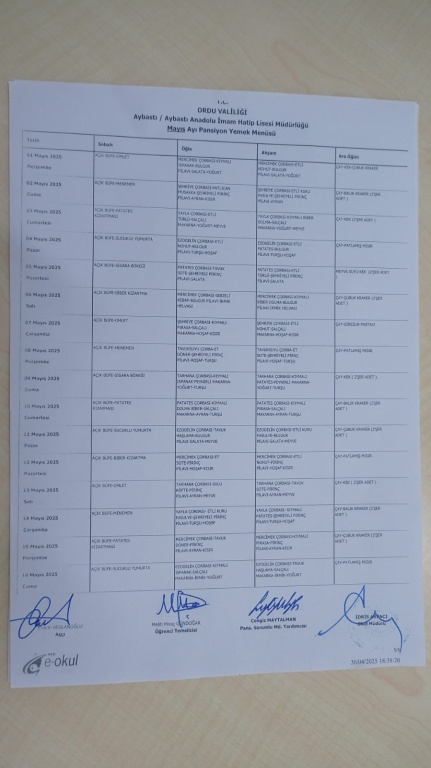 T.C.
ORDU VALİLİĞİ
Aybastı / Aybastı Anadolu İmam Hatip Lisesi Müdürlüğü
Mayıs Ayı Pansiyon Yemek Menüsü
Tarih Sabah Öğle Akşam Ara Öğün
01 Mayıs 2025 Perşembe
AÇIK BÜFE-OMLET
MERCİMEK ÇORBASI-KIYMALI
ISPANAK-BULGUR
PİLAVI-SALATA-YOĞURT
MERCİMEK ÇORBASI-ETLİ
NOHUT-BULGUR
PİLAVI-SALATA-YOĞURT
ÇAY-ÇUBUK KRAKER
02 Mayıs 2025 Cuma
AÇIK BÜFE-MENEMEN
ŞEHRİYE ÇORBASI-PATLICAN
MUSAKKA-ŞEHRİYELİ PİRİNÇ
PİLAVI-AYRAN-KISIR
ŞEHRİYE ÇORBASI-ETLİ KURU
FASULYE-ŞEHRİYELİ PİRİNÇ
PİLAVI-AYRAN
ÇAY-BALIK KRAKER (2'ŞER
ADET )
03 Mayıs 2025 Cumartesi
AÇIK BÜFE-PATATES
KIZARTMASI
YAYLA ÇORBASI-ETLİ
TÜRLÜ-SALÇALI
MAKARNA-YOĞURT-MEYVE
YAYLA ÇORBASI-KIYMALI BİBER
DOLMA-SALÇALI
MAKARNA-YOĞURT-MEYVE
ÇAY-KEK (2'ŞER ADET )
04 Mayıs 2025 Pazar
AÇIK BÜFE-SUCUKLU YUMURTA
EZOGELİN ÇORBASI-ETLİ
NOHUT-BULGUR
PİLAVI-TURŞU-HOŞAF
EZOGELİN ÇORBASI-ETLİ
PİLAVI-TURŞU-HOŞAF
ÇAY-PATLAMIŞ MISIR
05 Mayıs 2025 Pazartesi
AÇIK BÜFE-SİGARA BÖREĞİ
PATATES ÇORBASI-TAVUK
SOTE-ŞEHRİYELİ PİRİNÇ
PİLAVI-SALATA
PATATES ÇORBASI-ETLİ
TÜRLÜ-ŞEHRİYELİ PİRİNÇ
PİLAVI-SALATA
MEYVE SUYU-KEK (2'ŞER
ADET )
06 Mayıs 2025 Salı
AÇIK BÜFE-BİBER KIZARTMA
MERCİMEK ÇORBASI-SEBZELİ
KEBAP-BULGUR PİLAVI-İRMİK
HELVASI
MERCİMEK ÇORBASI-KIYMALI
BİBER DOLMA-BULGUR
PİLAVI-İRMİK HELVASI
ÇAY-ÇUBUK KRAKER (2'ŞER
ADET )
07 Mayıs 2025 Çarşamba
AÇIK BÜFE-OMLET
ŞEHRİYE ÇORBASI-KIYMALI
PIRASA-SALÇALI
MAKARNA-HOŞAF-KISIR
ŞEHRİYE ÇORBASI-ETLİ
NOHUT-SALÇALI
MAKARNA-HOŞAF-KISIR
08 Mayıs 2025 Perşembe
AÇIK BÜFE-MENEMEN
TAVUKSUYU ÇORBA-ET
DÖNER-ŞEHRİYELİ PİRİNÇ
PİLAVI-HOŞAF-TURŞU
TAVUKSUYU ÇORBA-ET
SOTE-ŞEHRİYELİ PİRİNÇ
PİLAVI-HOŞAF-TURŞU
ÇAY-PATLAMIŞ MISIR
09 Mayıs 2025 Cuma
AÇIK BÜFE-SİGARA BÖREĞİ
TARHANA ÇORBASI-KIYMALI
ISPANAK-PEYNİRLİ MAKARNA-
YOĞURT-TURŞU
TARHANA ÇORBASI-KIYMALI
PATATES-PEYNİRLİ MAKARNA-
YOĞURT-TURŞU
ÇAY-KEK ( 2'ŞER ADET )
10 Mayıs 2025 Cumartesi
AÇIK BÜFE-PATATES
KIZARTMASI
PATATES ÇORBASI-KIYMALI
DOLMA BİBER-SALÇALI
MAKARNA-AYRAN-TURŞU
PATATES ÇORBASI-KIYMALI
PIRASA-SALÇALI
MAKARNA-AYRAN-TURŞU
ÇAY-BALIK KRAKER (2'ŞER
ADET )
11 Mayıs 2025 Pazar
AÇIK BÜFE-SUCUKLU YUMURTA
EZOGELİN ÇORBASI-TAVUK
HAŞLAMA-BULGUR
PİLAVI-SALATA-MEYVE
EZOGELİN ÇORBASI-ETLİ KURU
FASULYE-BULGUR
PİLAVI-SALATA-MEYVE
ÇAY-ÇUBUK KRAKER (2'ŞER
ADET )
12 Mayıs 2025 Pazartesi
AÇIK BÜFE-BİBER KIZARTMA
MERCİMEK ÇORBASI-ET
SOTE-PİRİNÇ
PİLAVI-HOŞAF-KISIR
MERCİMEK ÇORBASI-ETLİ
NOHUT-PİRİNÇ
PİLAVI-HOŞAF-KISIR
ÇAY-PATLAMIŞ MISIR
13 Mayıs 2025 Salı
AÇIK BÜFE-OMLET
TARHANA ÇORBASI-SULU
KÖFTE-PİRİNÇ
PİLAVI-AYRAN-MEYVE
TARHANA ÇORBASI-TAVUK
SOTE-PİRİNÇ
PİLAVI-AYRAN-MEYVE
ÇAY-KEK ( 2'ŞER ADET )
14 Mayıs 2025 Çarşamba
AÇIK BÜFE-MENEMEN
YAYLA ÇORBASI- ETLİ KURU
FASULYE-ŞEHRİYELİ PİRİNÇ
PİLAVI-TURŞU-HOŞAF
YAYLA ÇORBASI-KIYMALI
PATATES-ŞEHRİYELİ PİRİNÇ
PİLAVI-TURŞU-HOŞAF
ÇAY-BALIK KRAKER (2'ŞER
ADET )
15 Mayıs 2025 Perşembe
AÇIK BÜFE-PATATES
KIZARTMASI
MERCİMEK ÇORBASI-TAVUK
DÖNER-PİRİNÇ
PİLAVI-AYRAN-KISIR
MERCİMEK ÇORBASI-KIYMALI
PIRASA-PİRİNÇ
PİLAVI-AYRAN-KISIR
ÇAY-ÇUBUK KRAKER (2'ŞER
ADET )
16 Mayıs 2025 Cuma
AÇIK BÜFE-SUCUKLU YUMURTA
EZOGELİN ÇORBASI-KIYMALI
ISPANAK-SALÇALI
MAKARNA-İRMİK-YOĞURT
EZOGELİN ÇORBASI-TAVUK
HAŞLAMA-SALÇALI
MAKARNA-İRMİK-YOĞURT
ÇAY-PATLAMIŞ MISIR
Aşçı
Öğrenci Temsilcisi
Cengiz MAYTALMAN
Pans. Sorumlu Md. Yardımcısı
İDRİS
Okul Müdürü
e-okul
30/04/2025 16:38:20